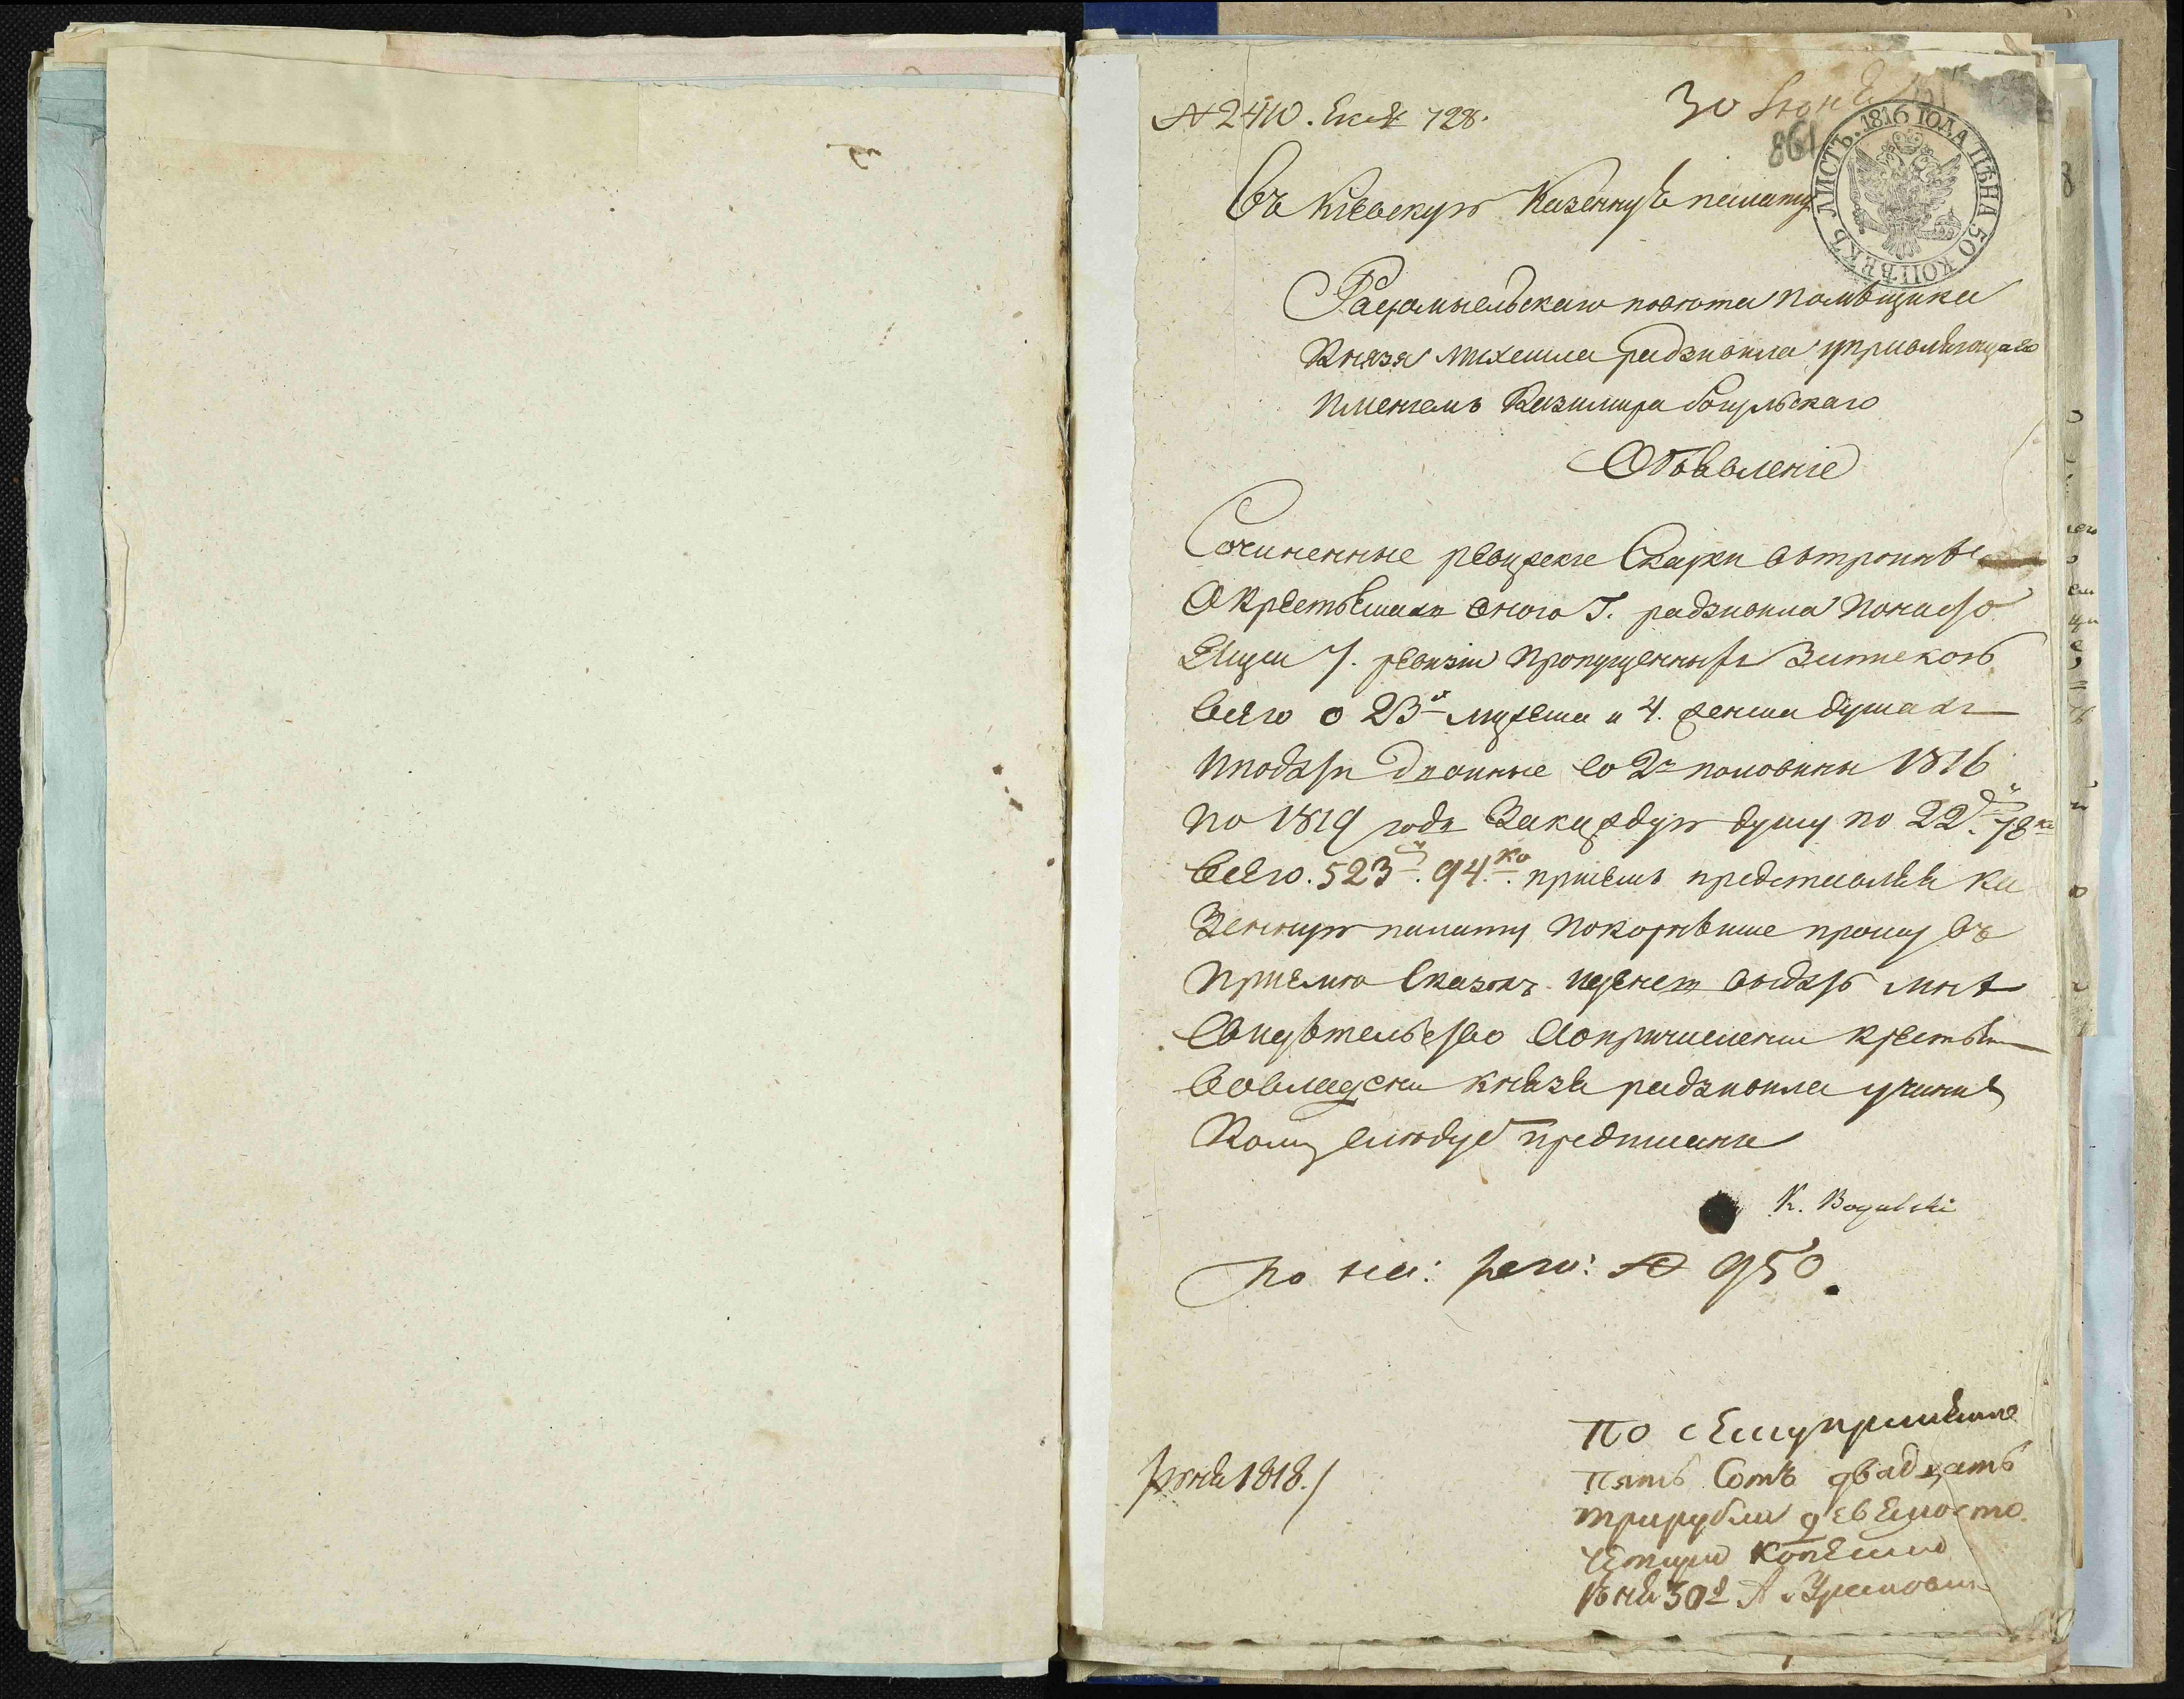 № 2410.
728.
30 Июня
861
ЛИСТЪ. 1816 ГОДА ЦѢНА 50 КОПѢЕКЪ
Въ Кіевскую Казенную палату
Радомысльскаго повѣта помѣщика
Князя Михаила Радзивила управляющаго
имѣніемъ Казимира Богульскаго
Объявленіе
Сочиненные ревизскіе Сказки втроинѣ
О крестьянахъ оного Г. радзивила
7. ревизіи пропущенныхъ
всего о 23х мужеска и 4. женска душахъ
двойные со 2й половины 1816
по 1819 годъ Закаждую душу по 22 78 ко
всего. 523. 94 ко. при семъ представляя Ка
Зенную палату покорнѣйше прошу въ
пріемѣ Сказокъ выдать мнѣ
Свидѣтельство опричислении крестьянъ
вовладение князя радзивила учинить
Кому следуетъ предписание
K. Bogulski
по на: рего: № 950.
Июня 1818.
По сему
пять Сотъ двадцать
три рубли девяносто
четыри копейки
Июня 30 д